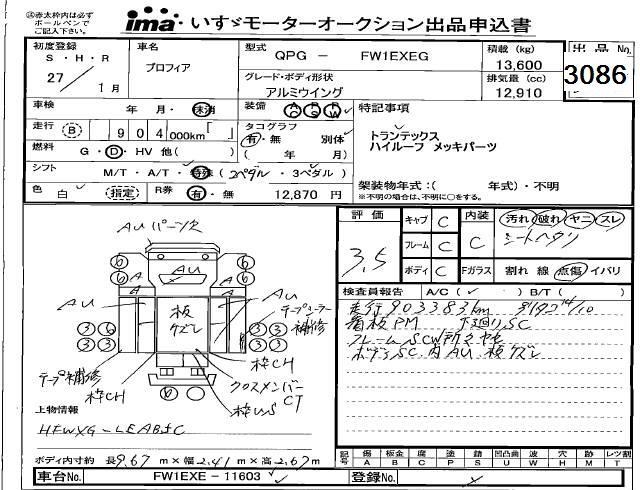 ㊟赤太枠内は必ず
ボールペンで
ご記入下さい。
ima いすゞモーターオークション出品申込書
初度登録 S・H・R 27/1月
車名 プロフィア
型式 QPG － FW1EXEG
積載 (kg) 13,600
出品No. 3086
グレード・ボディ形状 アルミウイング
排気量 (cc) 12,910
車検 年 月・抹消
装備 AC PS PW
特記事項
走行 B 904 000km「 」
タコグラフ 有・無 別体
( 年 月)
トランテックス
ハイルーフ メッキパーツ
燃料 G・D・HV 他( )
シフト M/T・A/T・特殊(2ペダル・3ペダル)
架装物年式：( 年式)・不明
※不明の場合は、不明に○をする。
色 白 (指定) R券 有・無 12,870 円
評価 3.5
キャブ C
フレーム C
ボディ C
内装 C
汚れ 破れ ヤニ スレ
シートヘタリ
Fガラス 割れ 線 点傷 イバリ
検査員報告 A/C( ✓ ) B/T( )
走行903383km
看板PM 下廻りSC
ボデーSC 内AU 板ケズレ
AU バーンズ
AU
AU
AU
板ケズレ
テープ補修
枠CH
枠CH
クロスメンバーCT
上物情報
HFWXG-LEABJC
ボディ内寸約 長9.67m×幅2.41m×高2.67m
記号 傷A 板金B 腐C 塗P 錆S 凹U 波W 穴H 跡M レツ割T
車台No. FW1EXE－11603
登録No.